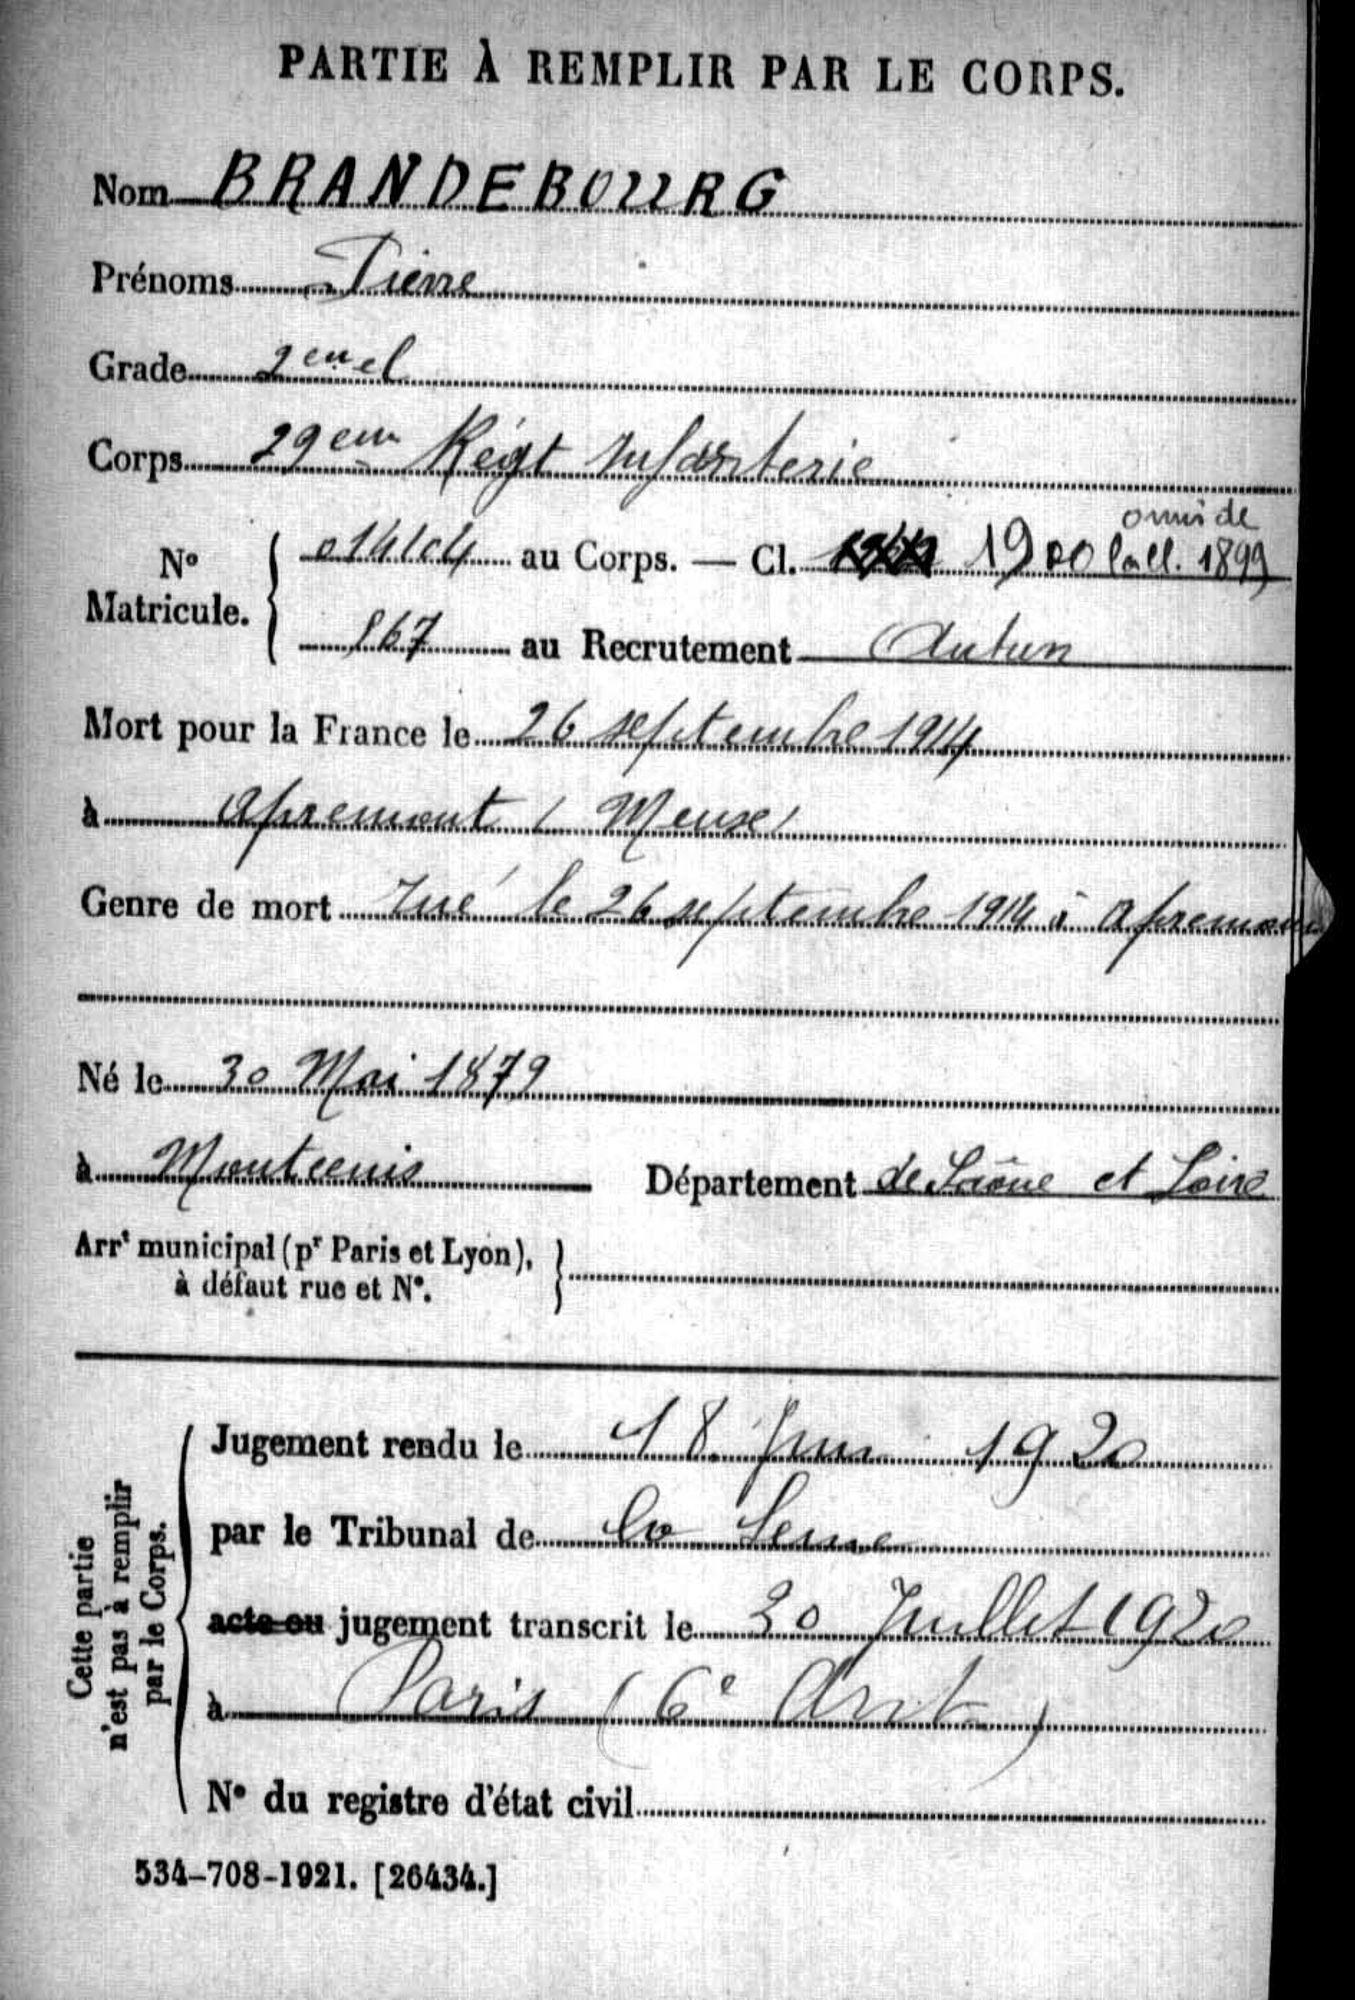 PARTIE À REMPLIR PAR LE CORPS.
Nom BRANDEBOURG
Prénoms Pierre
Grade 2eme cl
Corps 29em Régt Infanterie
omis de
No Matricule. 014104 au Corps. — Cl. 1900 la cl. 1899
867 au Recrutement Autun
Mort pour la France le 26 septembre 1914
à Apremont (Meuse)
Genre de mort Tué le 26 septembre 1914 à Apremont
Né le 30 Mai 1879
à Montcenis Département de Saône et Loire
Arrt municipal (pr Paris et Lyon),
à défaut rue et N°.
Cette partie
n'est pas à remplir
par le Corps.
Jugement rendu le 18 Juin 1920
par le Tribunal de la Seine
acte ou jugement transcrit le 30 Juillet 1920
à Paris (6e Arrt)
N° du registre d'état civil
534-708-1921. [26434.]